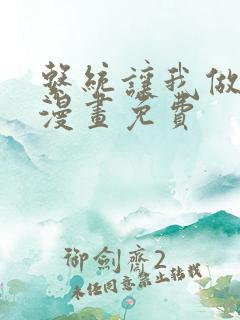 繫統讓我做
漫畫免費
御劍齋2
未经同意禁止转载